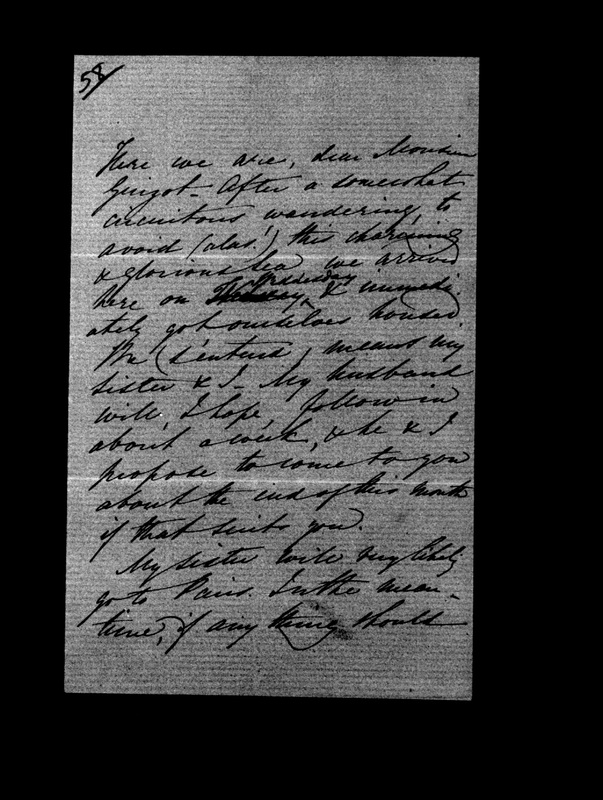 58
Here we are, dear Monsieur
Guizot - After a somewhat
circuitous wandering, to
avoid (alas!) this charming
& glorious sea we arrived
yesterday
here on & immedi
ately got ourselves housed
We (s'entend) means my
sister & I - My husband
will, I hope, follow in
about a week, & he & I
propose to come to you
about the end of this month
if that suits you.
My sister will very likely
go to Paris. In the mean-
time, if any thing should